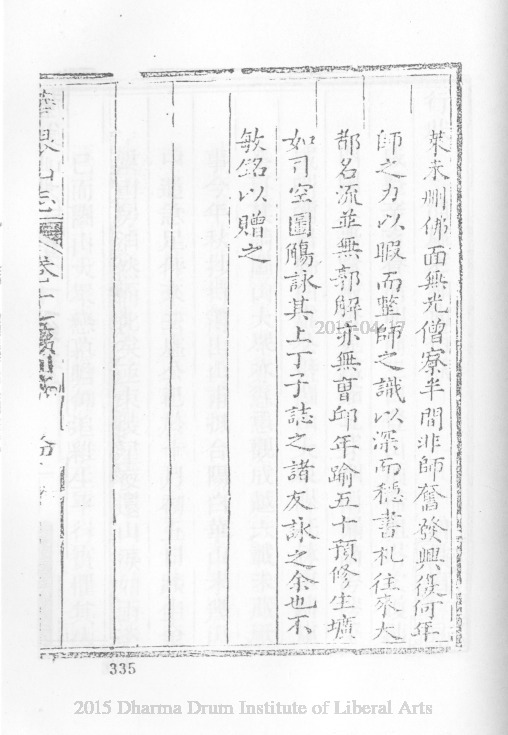 萊未刪佛面無光僧寮半間非師奮發興復何年
師之力以暇而整師之識以深而穩書札往來大
都名流並無郭解亦無曹邱年踰五十預修生壙
如司空圖觴詠其上丁子誌之諸友詠之余也不
敏銘以贈之
山志 卷十
335
2015 Dharma Drum Institute of Liberal Arts